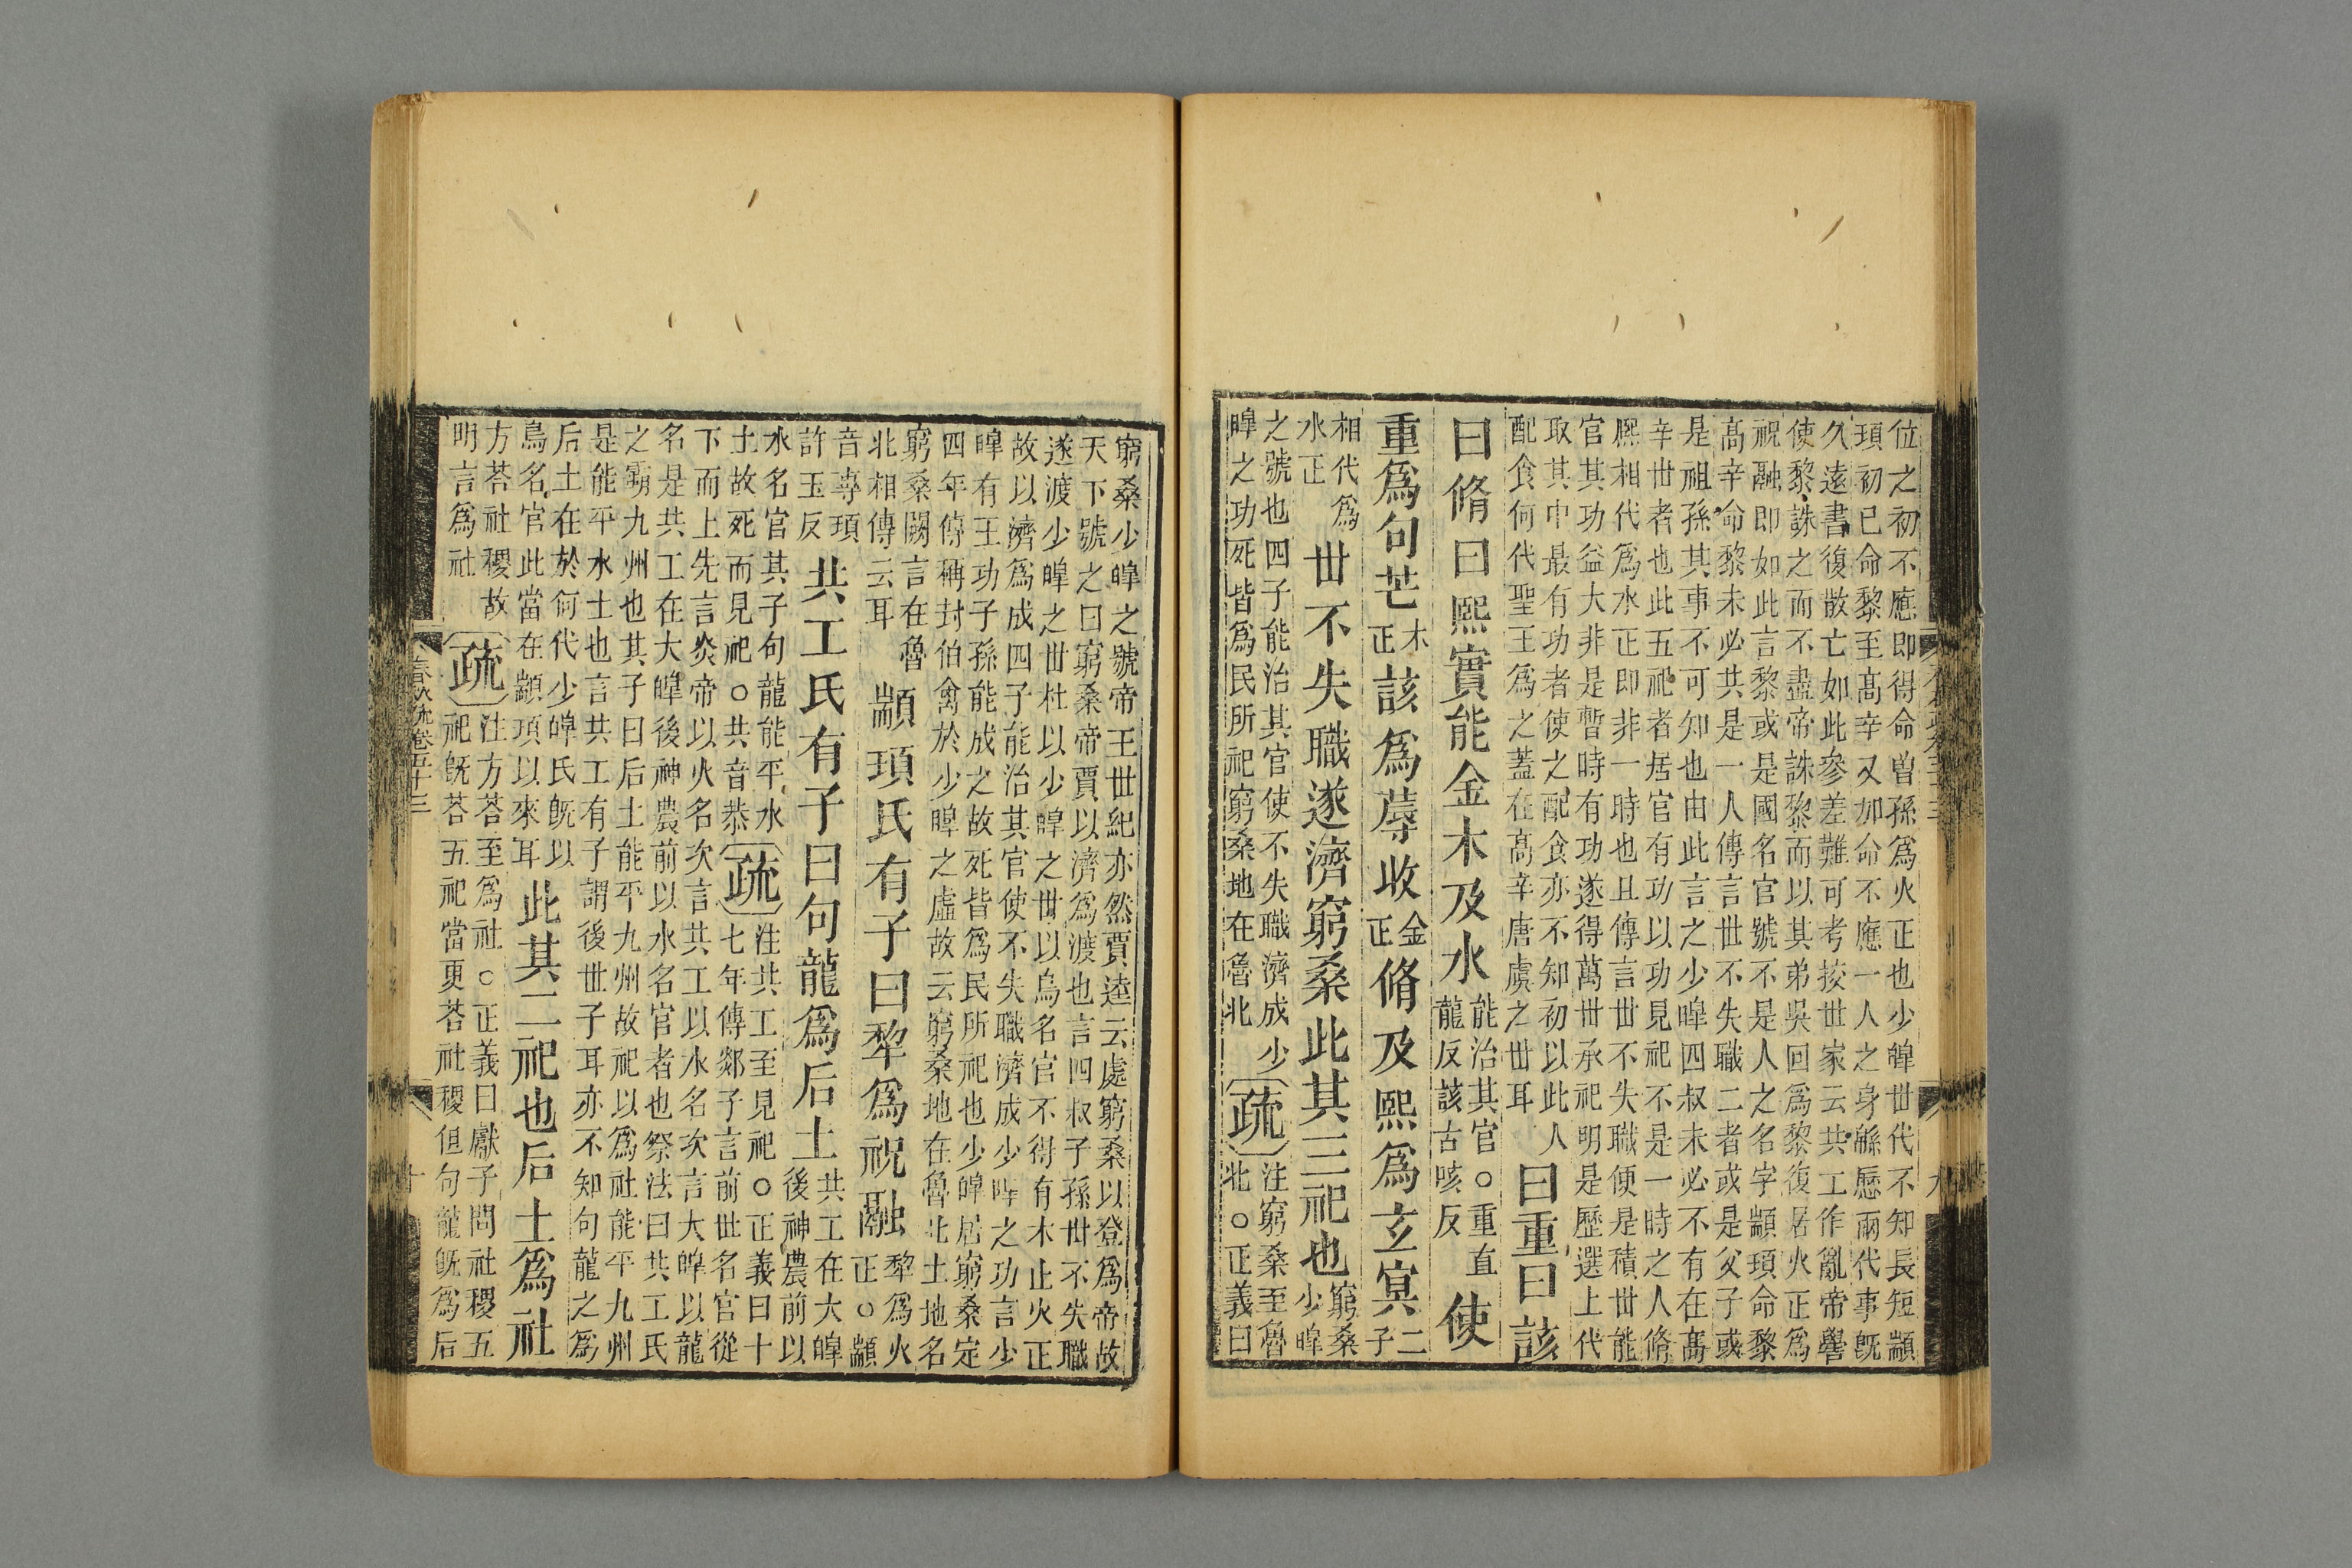 位之初不應即得命曾孫爲火正也少皡世代不知長短顓
頊初已命黎至高辛又加命不應一人之身緜歷兩代事既
久遠書復散亡如此參差難可考挍世家云共工作亂帝嚳
使黎誅之而不盡帝誅黎而以其弟吳回爲黎復居火正爲
祝融即如此言黎或是國名官號不是人之名字顓頊命黎
高辛命黎未必共是一人傳言世不失職二者或是父子或
是祖孫其事不可知也由此言之少皡四叔未必不有在高
辛世者也此五祀者居官有功以功見祀不是一時之人脩
熈相代爲水正即非一時也且傳言世不失職便是積世能
官其功益大非是暫時有功遂得萬世承祀明是歷選上代
取其中最有功者使之配食亦不知初以此人
配食何代聖王爲之蓋在高辛唐虞之世耳
曰重曰該
曰脩曰熙實能金木及水
能治其官○重直
龍反該古咳反
使
重爲句芒
木
正
該爲蓐收
金
正
脩及熙爲玄冥
二
子
相代爲
水正
世不失職遂濟窮桑此其三祀也
窮桑
少皡
之號也四子能治其官使不失職濟成少
皡之功死皆爲民所祀窮桑地在魯北
疏
注窮桑至魯
北○正義曰
窮桑少皡之號帝王世紀亦然賈逵云處窮桑以登爲帝故
天下號之曰窮桑帝賈以濟爲渡也言四叔子孫世不失職
遂渡少皡之世杜以少皡之世以鳥名官不得有木正火正
故以濟爲成四子能治其官使不失職濟成少皡之功言少
皡有王功子孫能成之故死皆爲民所祀也少皡居窮桑定
四年傳稱封伯禽於少皡之虛故云窮桑地在魯北土地名
窮桑闕言在魯
北相傳云耳
顓頊氏有子曰犂爲祝融
犂爲火
正○顓
音專頊
許玉反
共工氏有子曰句龍爲后土
共工在大皡
後神農前以
水名官其子句龍能平水
土故死而見祀○共音恭
疏
注共工至見祀○正義曰十
七年傳郯子言前世名官從
下而上先言炎帝以火名次言共工以水名次言大皡以龍
名是共工在大皡後神農前以水名官者也祭法曰共工氏
之霸九州也其子曰后土能平九州故祀以爲社能平九州
是能平水土也言共工有子謂後世子耳亦不知句龍之爲
后土在於何代少皡氏既以
鳥名官此當在顓頊以來耳
此其二祀也后土爲社
方荅社稷故
明言爲社
疏
注方荅至爲社○正義曰獻子問社稷五
祀既荅五祀當更荅社稷但句龍既爲后
春秋疏卷五十三
十